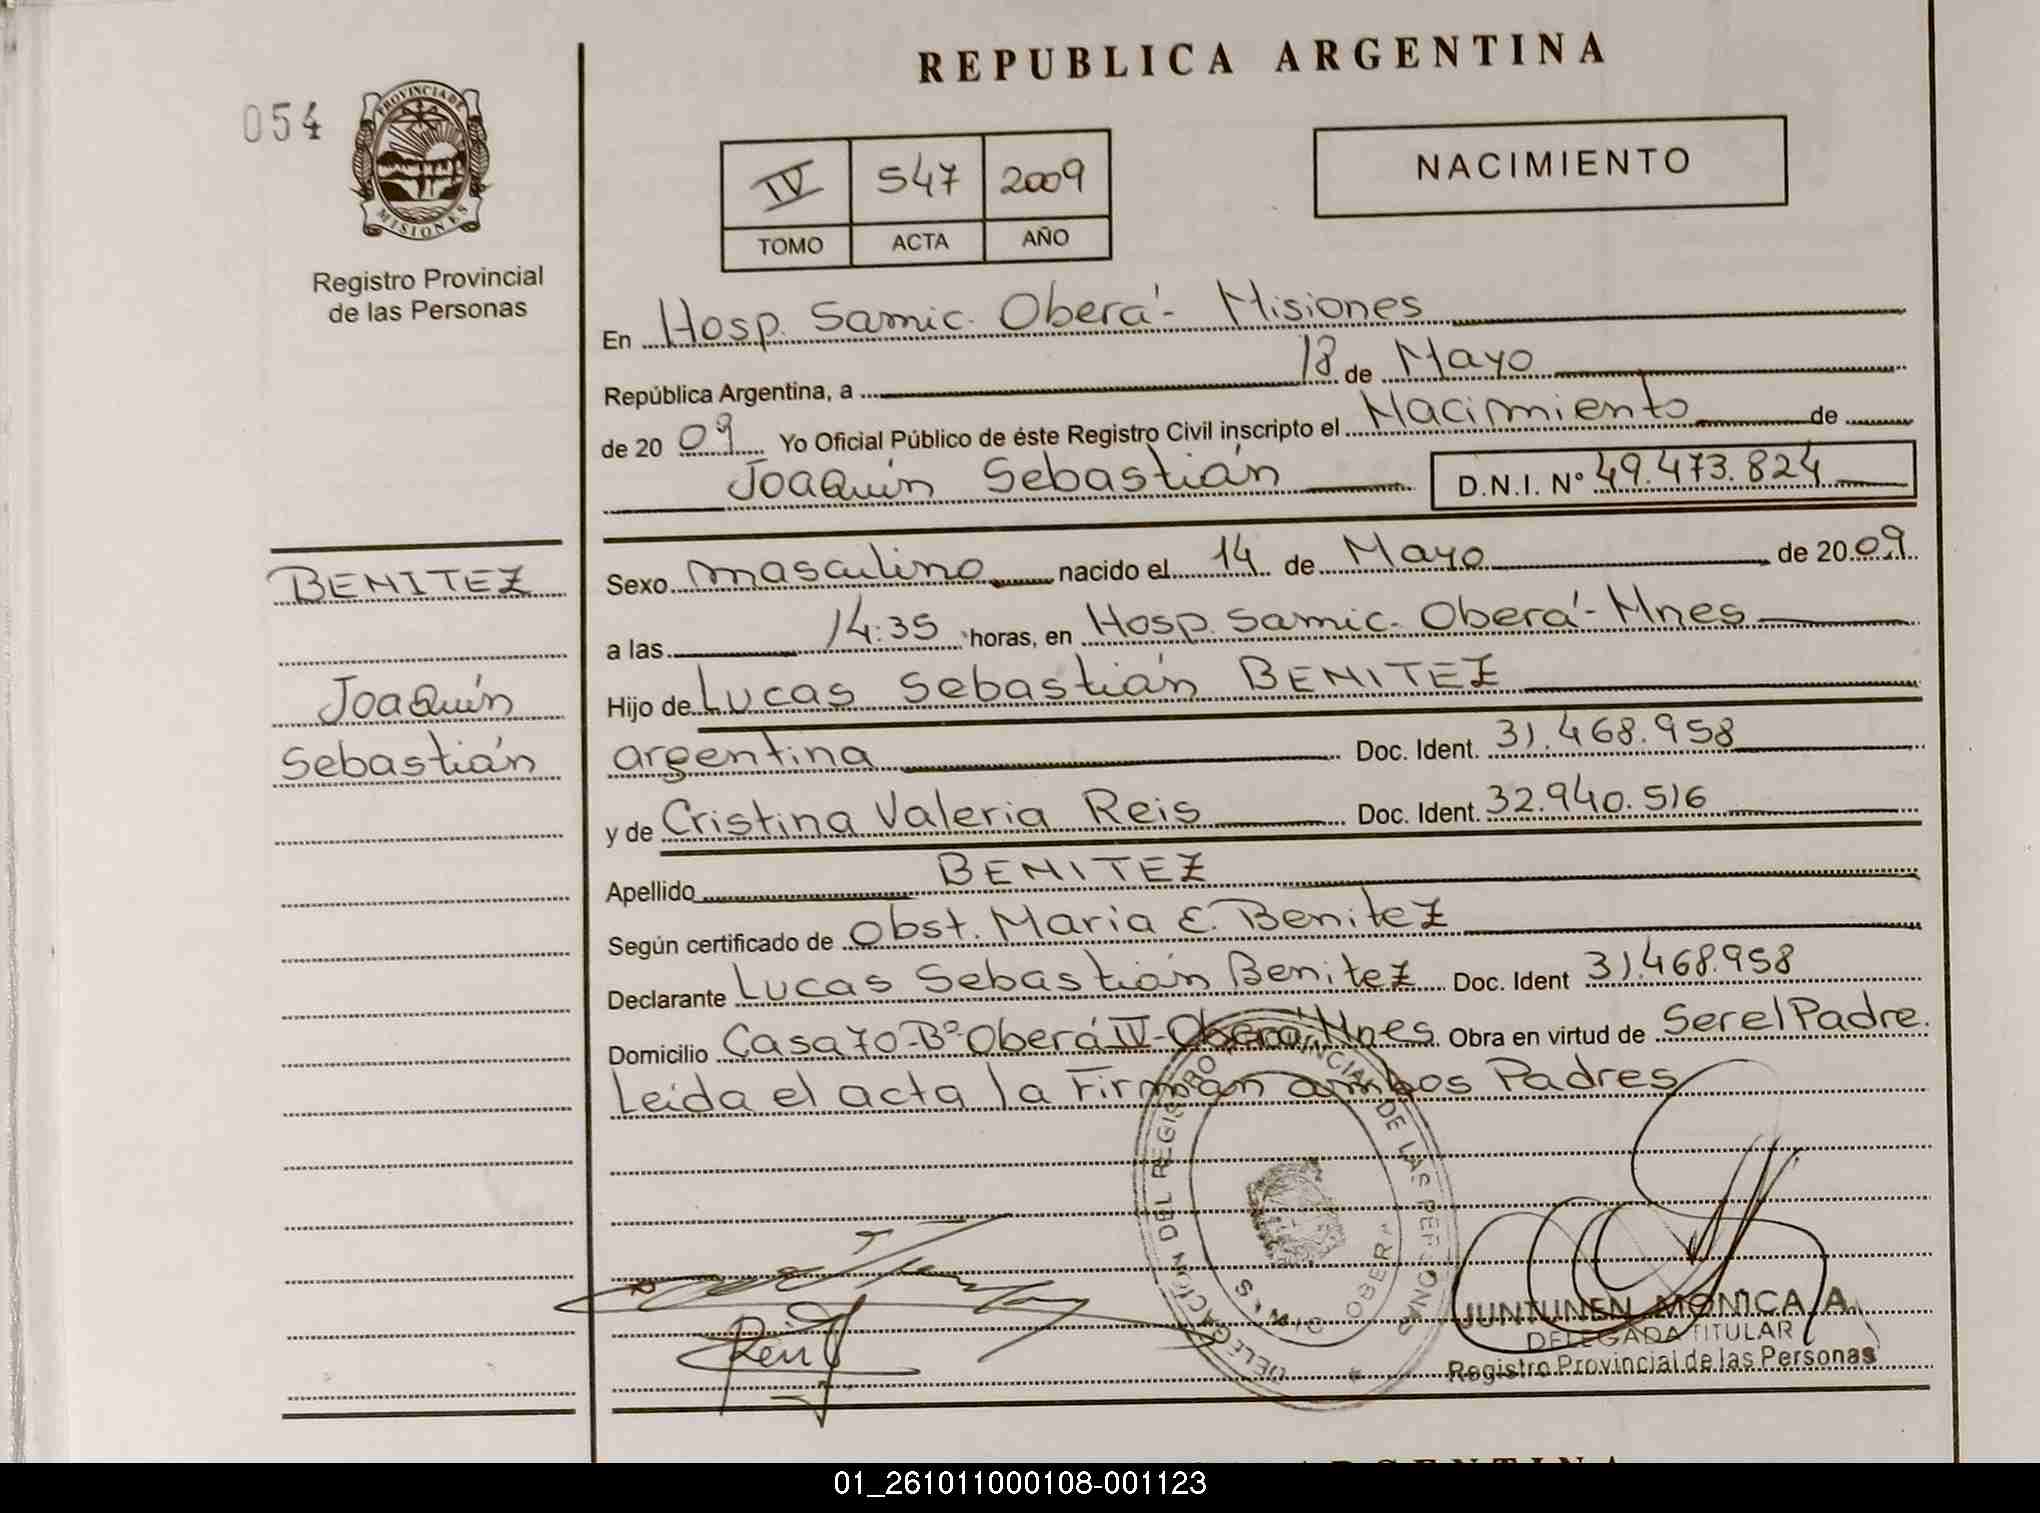 REPUBLICA ARGENTINA
054
PROVINCIA DE
MISIONES
Registro Provincial
de las Personas
IV 547 2009
TOMO ACTA AÑO
NACIMIENTO
En Hosp. Samic. Oberá - Misiones
República Argentina, a 18 de Mayo
de 20 09 Yo Oficial Público de éste Registro Civil inscripto el Nacimiento de
Joaquín Sebastián D.N.I. Nº 49.473.824
BENITEZ
Joaquín
Sebastián
Sexo masculino nacido el 14 de Mayo de 20 09
a las 14:35 horas, en Hosp. Samic. Oberá - Mnes
Hijo de Lucas Sebastián BENITEZ
argentina Doc. Ident. 31.468.958
y de Cristina Valeria Reis Doc. Ident. 32.940.516
Apellido BENITEZ
Según certificado de Obst. Maria E. Benitez
Declarante Lucas Sebastián Benitez Doc. Ident 31.468.958
Domicilio Casa 70-Bº Oberá IV-Oberá, Mnes. Obra en virtud de Ser el Padre.
Leída el acta la Firman ambos Padres
DELEGACION DEL REGISTRO PROVINCIAL DE LAS PERSONAS
OBERA
JUNTUNEN MONICA A.
DELEGADA TITULAR
Registro Provincial de las Personas
01_261011000108-001123